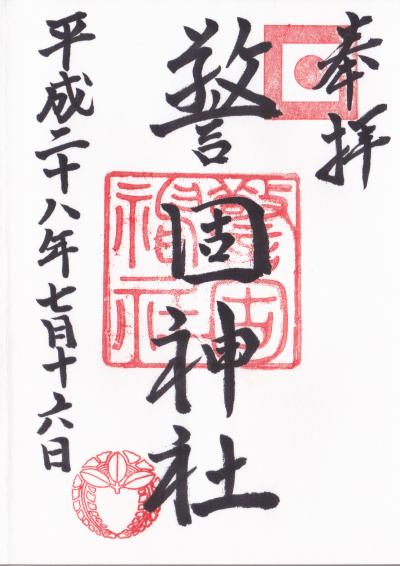 奉拝
警固神社
警固神社
平成二十八年七月十六日